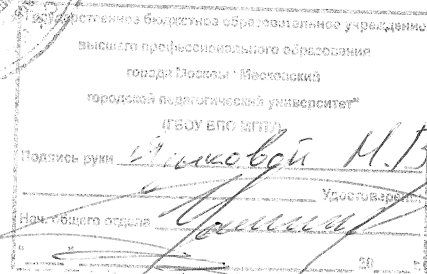 Государственное бюджетное образовательное учреждение
высшего профессионального образования
города Москвы "Московский
городской педагогический университет"
(ГБОУ ВПО МГПУ)
Подпись руки М.В.
Удостоверено
Нач. общего отдела
20